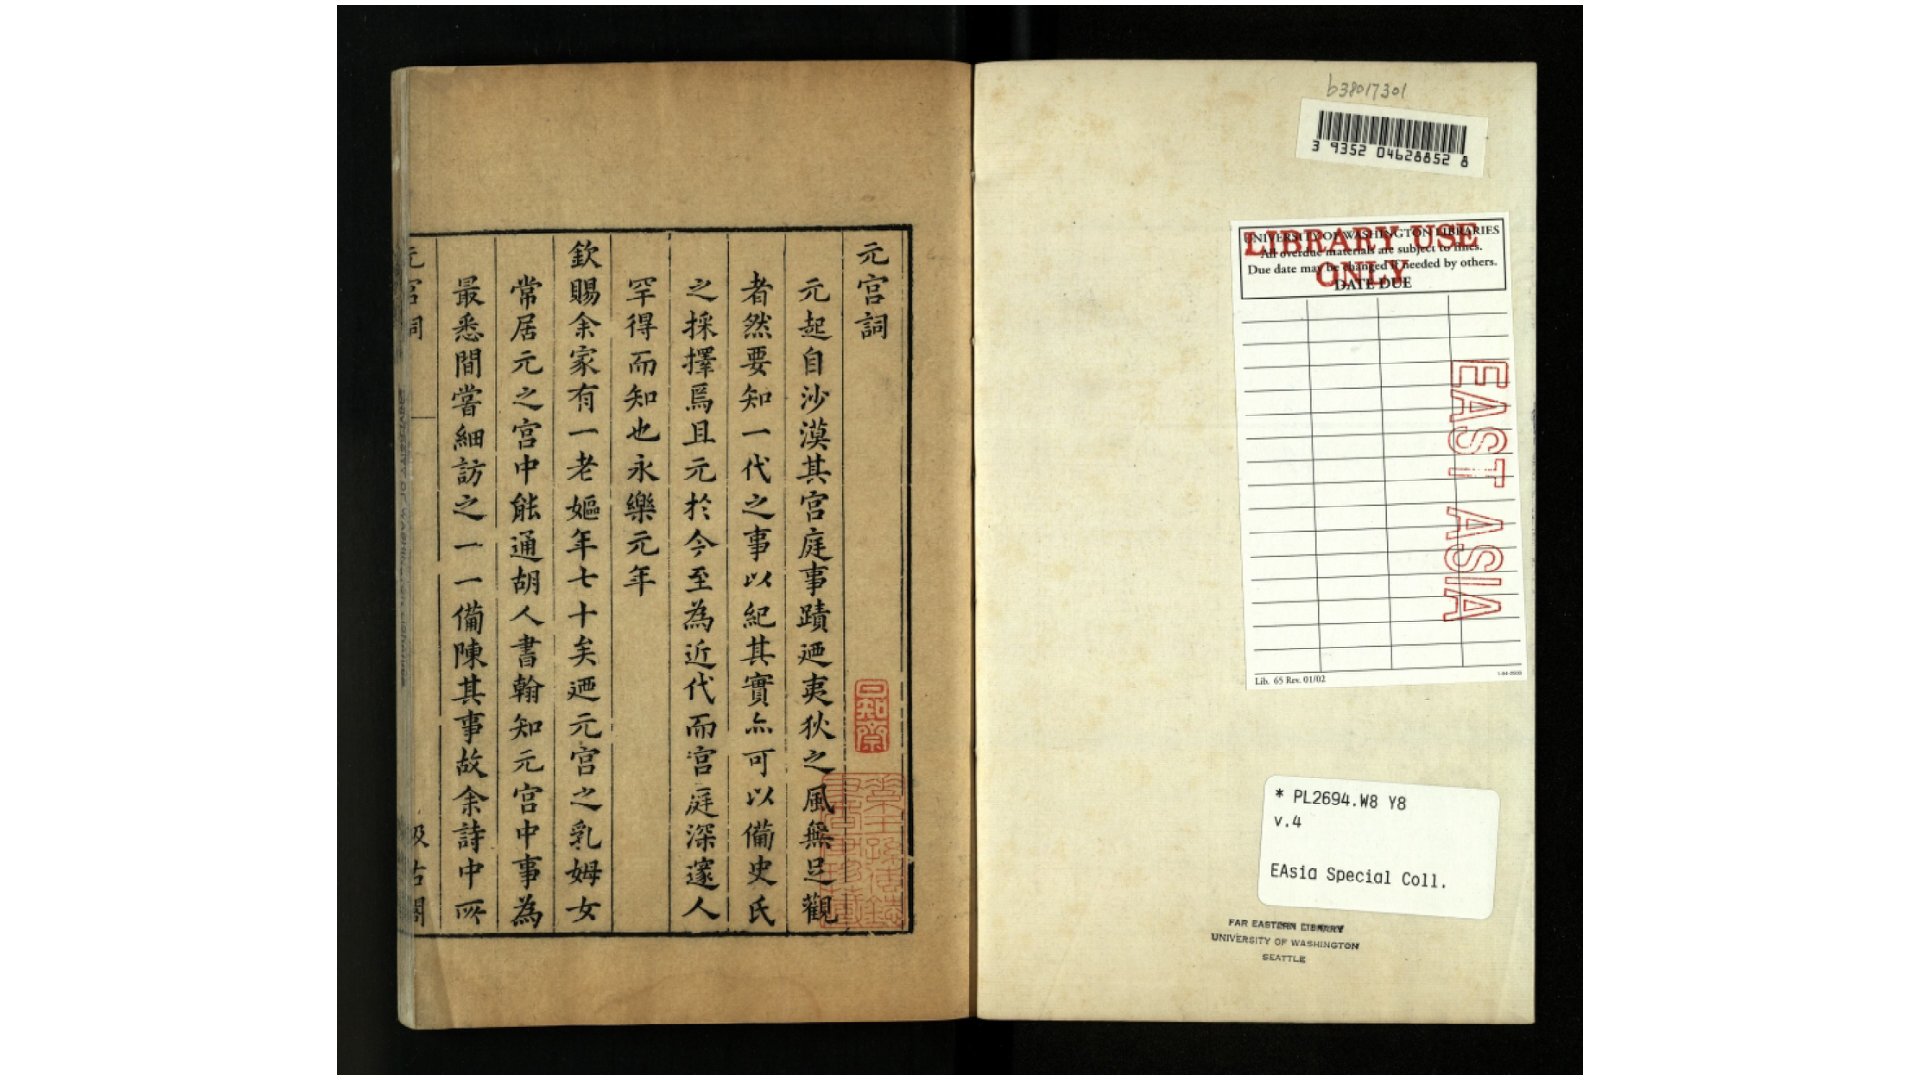 元宮詞
元起自沙漠其宮庭事蹟廼夷狄之風無足觀
者然要知一代之事以紀其實亦可以備史氏
之採擇焉且元於今至為近代而宮庭深邃人
罕得而知也永樂元年
欽賜余家有一老嫗年七十矣廼元宮之乳姆女
常居元之宮中能通胡人書翰知元宮中事為
最悉間嘗細訪之一一備陳其事故余詩中所
元宮詞
汲古閣
b38017301
3 9352 04628852 8
UNIVERSITY OF WASHINGTON LIBRARIES
All overdue materials are subject to fines.
Due date may be changed if needed by others.
DATE DUE
LIBRARY USE
ONLY
EAST ASIA
Lib. 65 Rev. 01/02
* PL2694.W8 Y8
v.4
EAsia Special Coll.
FAR EASTERN LIBRARY
UNIVERSITY OF WASHINGTON
SEATTLE